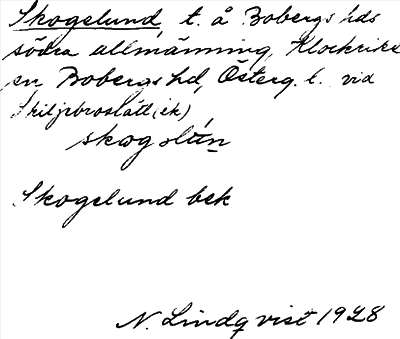 Skogslund, t. å Bobergs hds
södra allmänning, Klockrike
sn Bobergs hd, Österg. l. vid
Skiljebroslätt (ek)
skog slún
Skogslund bek
N. Lindqvist 1928